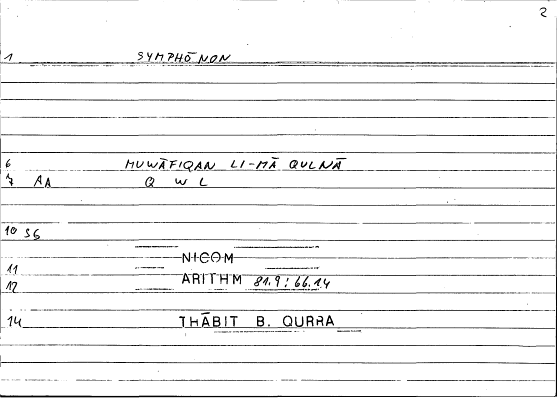 2
1 SYMPHŌNON
6 MUWĀFIQAN LI-MĀ QULNĀ
7 AA Q W L
10 36
NICOM
11
12 ARITHM 81.9 : 66.14
14 THĀBIT B. QURRA